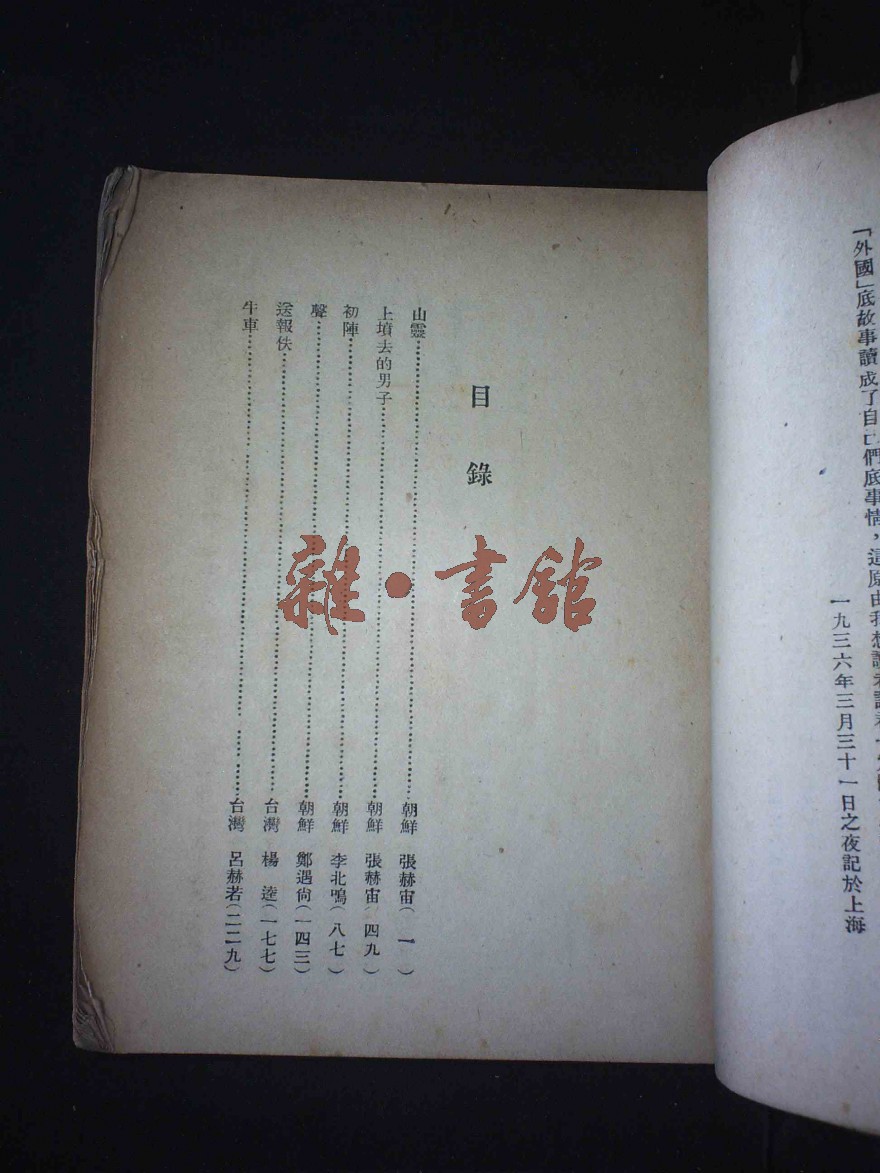 「外國」底故事讀成了自己們底事情，這原由我想
一九三六年三月三十一日之夜記於上海
目錄
山靈 朝鮮 張赫宙(一)
上墳去的男子 朝鮮 張赫宙(四九)
初陣 朝鮮 李北鳴(八七)
聲 朝鮮 鄭遇尙(一四三)
送報伕 台灣 楊逵(一七七)
牛車 台灣 呂赫若(二二九)
雜·書館